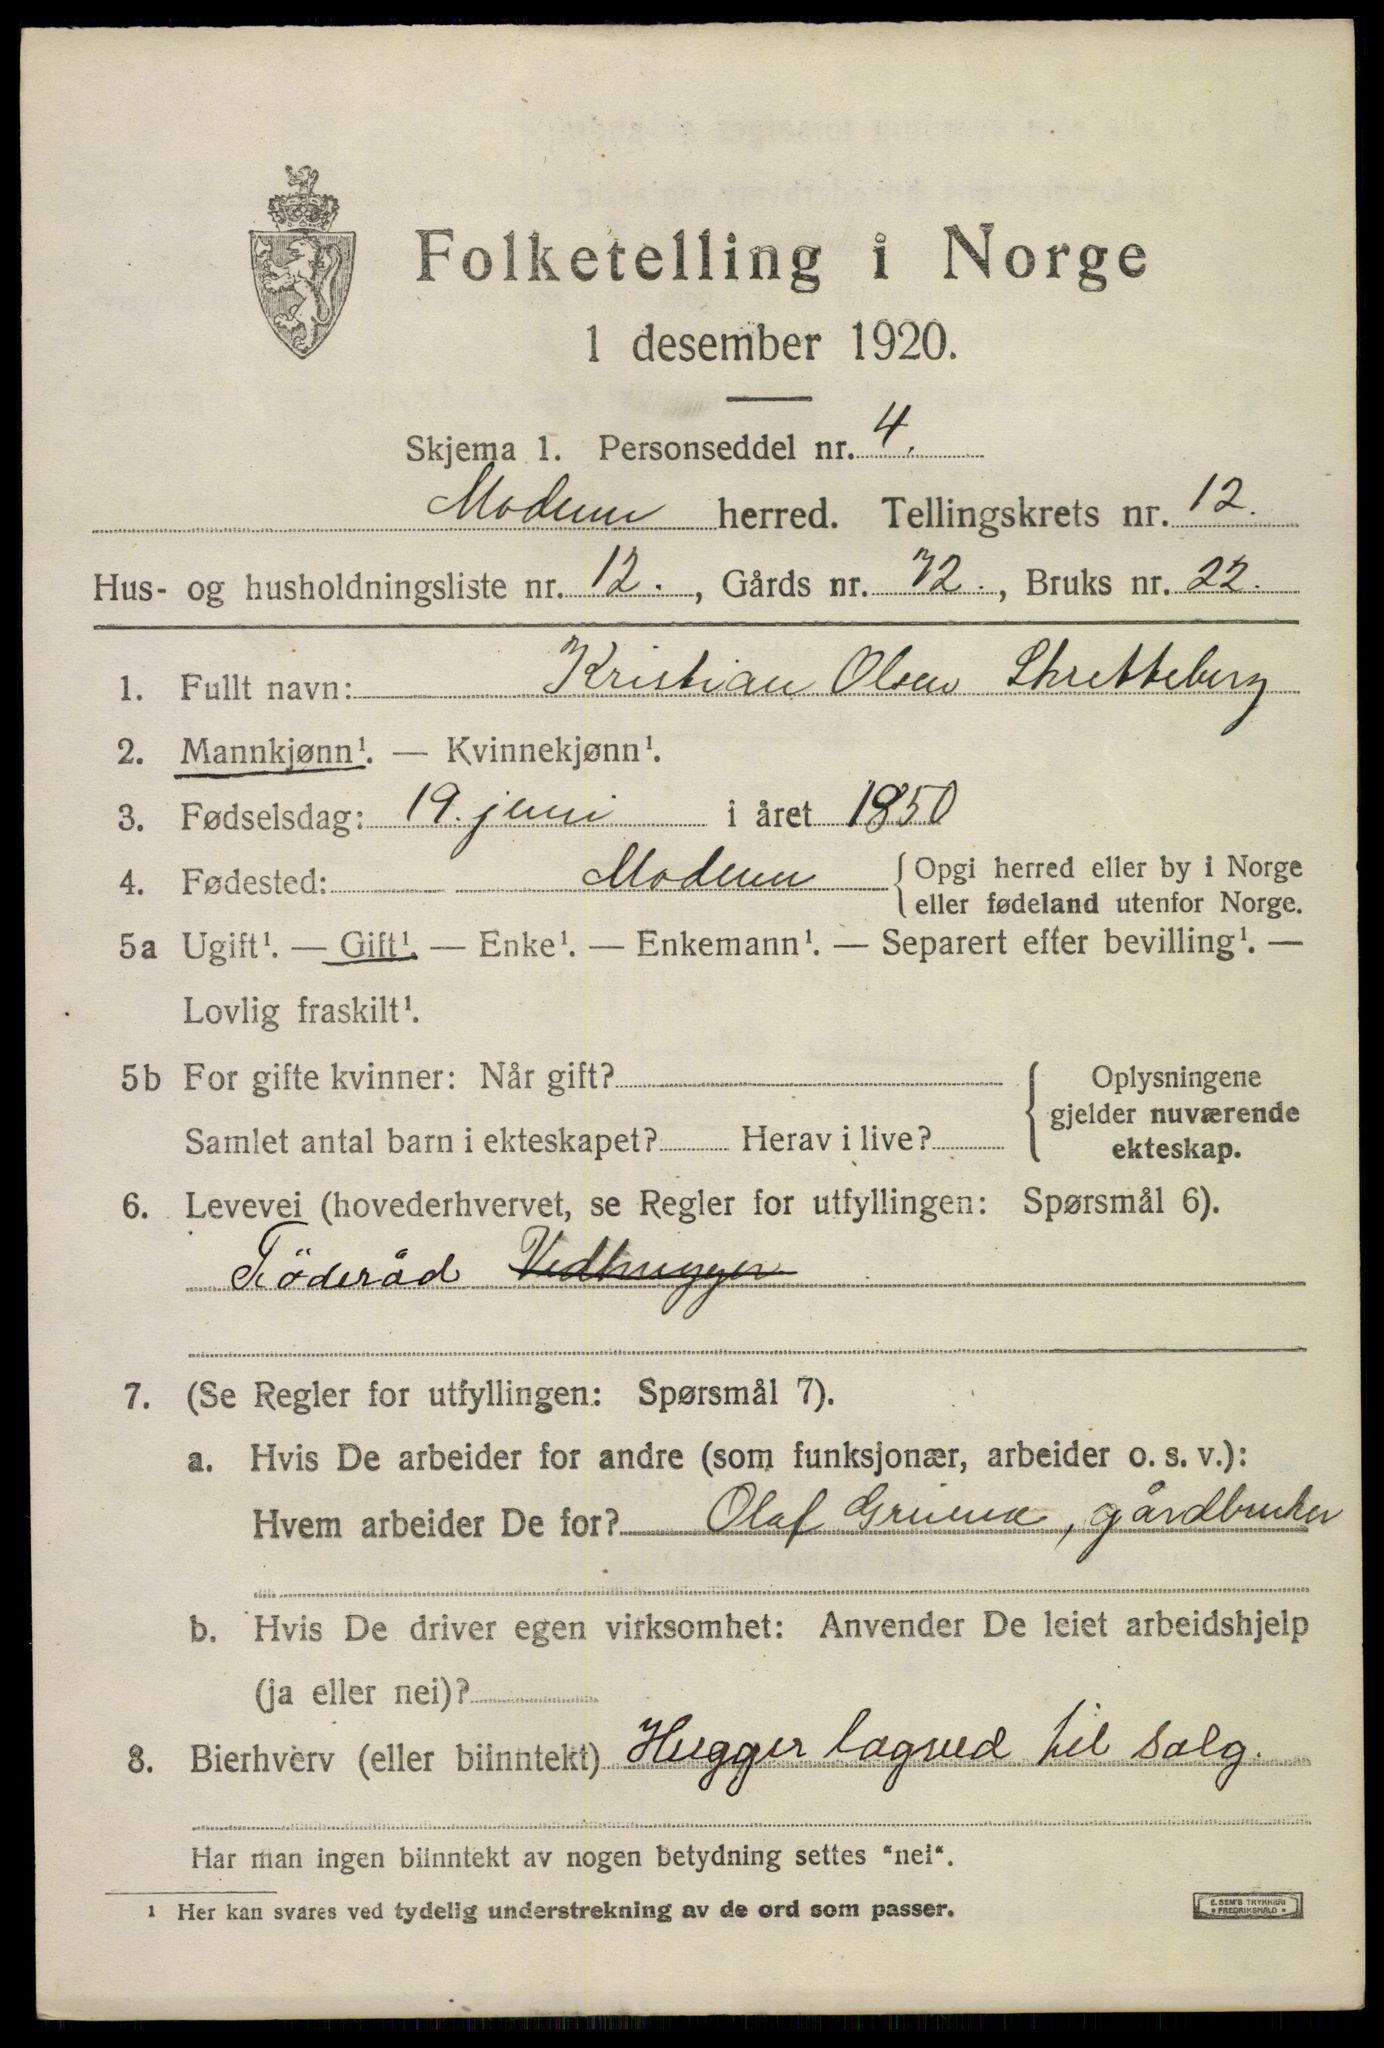 Folketelling i Norge
1 desember 1920.
Skjema 1. Personseddel nr. 4.
Modum herred. Tellingskrets nr. 12.
Hus- og husholdningsliste nr. 12., Gårds nr. 72., Bruks nr. 22.
1. Fullt navn: Kristian Olsen Skretteberg
2. Mannkjønn¹. — Kvinnekjønn¹.
3. Fødselsdag: 19. juni i året 1850
4. Fødested: Modum { Opgi herred eller by i Norge
eller fødeland utenfor Norge.
5a Ugift¹. — Gift¹. — Enke¹. — Enkemann¹. — Separert efter bevilling¹. —
Lovlig fraskilt¹.
5b For gifte kvinner: Når gift?
Samlet antal barn i ekteskapet? Herav i live?
Oplysningene
gjelder nuværende
ekteskap.
6. Levevei (hovederhvervet, se Regler for utfyllingen: Spørsmål 6).
Föderåd Vedhugger
7. (Se Regler for utfyllingen: Spørsmål 7).
a. Hvis De arbeider for andre (som funksjonær, arbeider o. s. v.):
Hvem arbeider De for? Olaf , gårdbruker
b. Hvis De driver egen virksomhet: Anvender De leiet arbeidshjelp
(ja eller nei)?
8. Bierhverv (eller biinntekt) Hugger lagved til salg.
Har man ingen biinntekt av nogen betydning settes "nei".
¹ Her kan svares ved tydelig understrekning av de ord som passer.
E. SEM'S TRYKKERI
FREDRIKSHALD